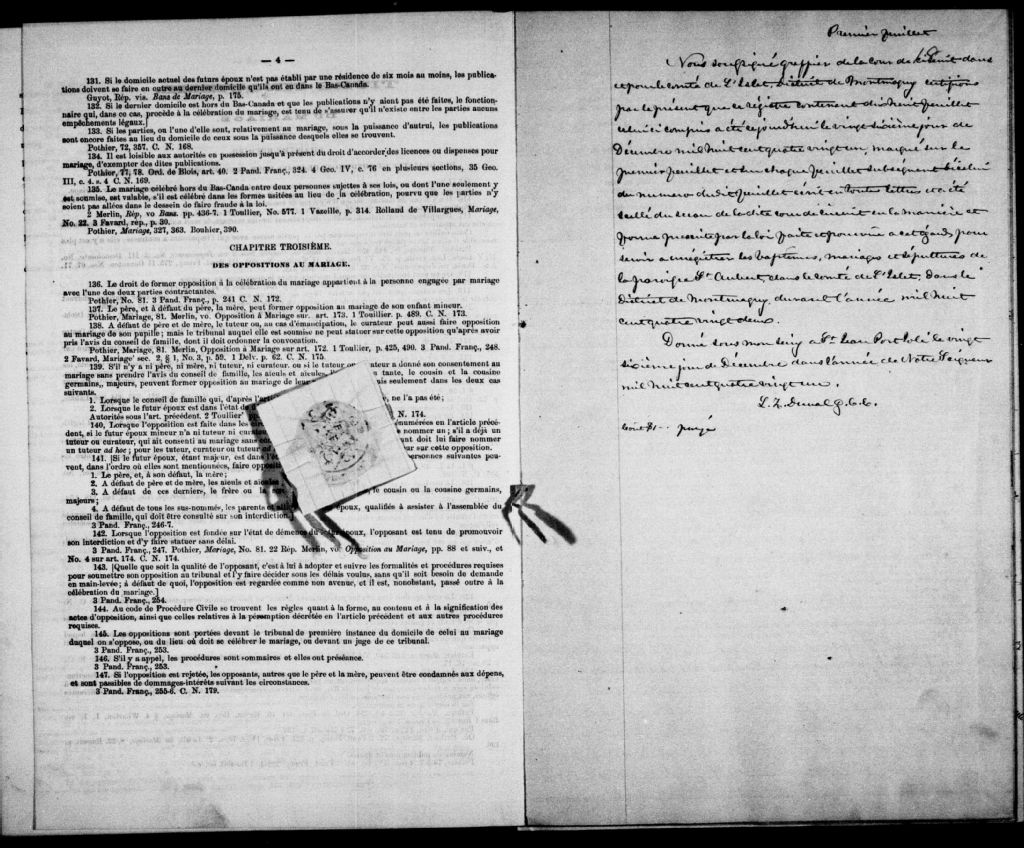 — 4 —
131. Si le domicile actuel des futurs époux n'est pas établi par une résidence de six mois au moins, les publica-
tions doivent se faire en outre au dernier domicile qu'ils ont eu dans le Bas-Canada.
Guyot, Rép. vis. Bans de Mariage, p. 175.
132. Si le dernier domicile est hors du Bas-Canada et que les publications n'y aient pas été faites, le fonction-
naire qui, dans ce cas, procède à la célébration du mariage, est tenu de s'assurer qu'il n'existe entre les parties aucuns
empêchements légaux.
133. Si les parties, ou l'une d'elle sont, relativement au mariage, sous la puissance d'autrui, les publications
sont encore faites au lieu du domicile de ceux sous la puissance desquels elles se trouvent.
Pothier, 72, 357. C. N. 168.
134. Il est loisible aux autorités en possession jusqu'à présent du droit d'accorder des licences ou dispenses pour
mariage, d'exempter des dites publications.
Pothier, 77, 78. Ord. de Blois, art. 40. 2 Pand. Franç., 324. 4 Geo. IV, c. 76 en plusieurs sections, 35 Geo.
III, c. 4. s. 4 C. N. 169.
135. Le mariage célébré hors du Bas-Canda entre deux personnes sujettes à ses lois, ou dont l'une seulement y
est soumise, est valable, s'il est célébré dans les formes usitées au lieu de la célébration, pourvu que les parties n'y
soient pas allées dans le dessein de faire fraude à la loi.
2 Merlin, Rép, vo Bans. pp. 436-7. 1 Toullier, No. 577. 1 Vazeille, p. 314. Rolland de Villargues, Mariage,
No. 22. 3 Favard, rép., p. 30.
Pothier, Mariage, 327, 363. Bouhier, 390.
CHAPITRE TROISIÈME.
DES OPPOSITIONS AU MARIAGE.
136. Le droit de former opposition à la célébration du mariage appartient à la personne engagée par mariage
avec l'une des deux parties contractantes.
Pothier, No. 81. 3 Pand. Franç., p. 241 C. N. 172.
137. Le père, et à défaut du père, la mère, peut former opposition au mariage de son enfant mineur.
Pothier, Mariage, 81. Merlin, vo. Opposition à Mariage sur. art. 173. 1 Touillier. p. 489. C. N. 173.
138. A défaut de père et de mère, le tuteur ou, au cas d'émancipation, le curateur peut aussi faire opposition
au mariage de son pupille; mais le tribunal auquel elle est soumise ne peut statuer sur cette opposition qu'après avoir
pris l'avis du conseil de famille, dont il doit ordonner la convocation.
Pothier, Mariage, 81. Merlin, Opposition à Mariage sur art. 172. 1 Toullier, p. 425, 490. 3 Pand. Franç., 248.
2 Favard, Mariage' sec. 2, § 1, No. 3, p. 59. 1 Delv. p. 62. C. N. 175.
139. S'il n'y a ni père, ni mère, ni tuteur, ni curateur, ou si le tuteur ou curateur a donné son consentement au
mariage sans prendre l'avis du conseil de famille, les aïeuls et aïeules, tante, le cousin et la cousine
germains, majeurs, peuvent former opposition au mariage de leur mais seulement dans les deux cas
suivants.
1. Lorsque le conseil de famille qui, d'après l'art ne l'a pas été;
2. Lorsque le futur époux est dans l'état de
Autorités sous l'art. précédent. 2 Toullier N. 174.
140. Lorsque l'opposition est faite dans les énumérées en l'article précé-
dent, si le futur époux mineur n'a ni tuteur ni nommer un; s'il a déjà un
tuteur ou curateur, qui ait consenti au mariage sans doit lui faire nommer
un tuteur ad hoc; pour les tuteur, curateur ou tuteur ad sur cette opposition.
141. [Si le futur époux, étant majeur, est dans l'état personnes suivantes peu-
vent, dans l'ordre où elles sont mentionnées, faire opposition
1. Le père, et, à son défaut, la mère;
2. A défaut de père et de mère, les aïeuls et aïeules;
3. A défaut de ces derniers, le frère ou la le cousin ou la cousine germains,
majeurs;
4. A défaut de tous les sus-nommés, les parents et époux, qualifiés à assister à l'assemblée du
conseil de famille, qui doit être consulté sur son interdiction.]
3 Pand. Franç., 246-7.
142. Lorsque l'opposition est fondée sur l'état de démence du futur époux, l'opposant est tenu de promouvoir
son interdiction et d'y faire statuer sans délai.
3 Pand. Franç., 247. Pothier, Mariage, No. 81. 22 Rép. Merlin, vo. Opposition au Mariage, pp. 88 et suiv., et
No. 4 sur art. 174. C. N. 174.
143. [Quelle que soit la qualité de l'opposant, c'est à lui à adopter et suivre les formalités et procédures requises
pour soumettre son opposition au tribunal et l'y faire décider sous les délais voulus, sans qu'il soit besoin de demande
en main-levée; à défaut de quoi, l'opposition est regardée comme non avenue, et il est, nonobstant, passé outre à la
célébration du mariage.]
3 Pand. Franç., 254.
144. Au code de Procédure Civile se trouvent les règles quant à la forme, au contenu et à la signification des
actes d'opposition, ainsi que celles relatives à la péremption décrétée en l'article précédent et aux autres procédures
requises.
145. Les oppositions sont portées devant le tribunal de première instance du domicile de celui au mariage
duquel on s'oppose, ou du lieu où doit se célébrer le mariage, ou devant un juge de ce tribunal.
3 Pand. Franç., 253.
146. S'il y a appel, les procédures sont sommaires et elles ont préséance.
3 Pand. Franç., 253.
147. Si l'opposition est rejetée, les opposants, autres que le père et la mère, peuvent être condamnés aux dépens,
et sont passibles de dommages-intérêts suivant les circonstances.
3 Pand. Franç., 255-6. C. N. 179.
Premier feuillet
Nous soussigné greffier de la cour de circuit dans
et pour le comté de L'Islet, District de Montmagny certifions
par le présent que ce régistre contenant dix huit feuillet
celui ci compris a été ce jourd'hui le vingt sixième jour de
Décembre mil huit cent quatre vingt un, marqué sur le
premier feuillet et sur chaque feuillet subséquent d'icelui
du numero du dit feuillet écrit en toutes lettres et a été
scellé du sceau de la dite cour de circuit en la manière et
forme prescrite par la loi faite et pourvue a cet égard, pour
servir a enrégistrer les baptêmes, mariages et sépultures de
la paroisse St. Aubert, dans le comté de L'Islet, dans le
District de Montmagny, durant l'année mil huit
cent quatre vingt deux.
Donné sous mon seing a St. Jean Port Joli le vingt
sixième jour de Décembre dans l'année de Notre Seigneur
mil huit cent quatre vingt un.
L. Z. Duval g. C. C.